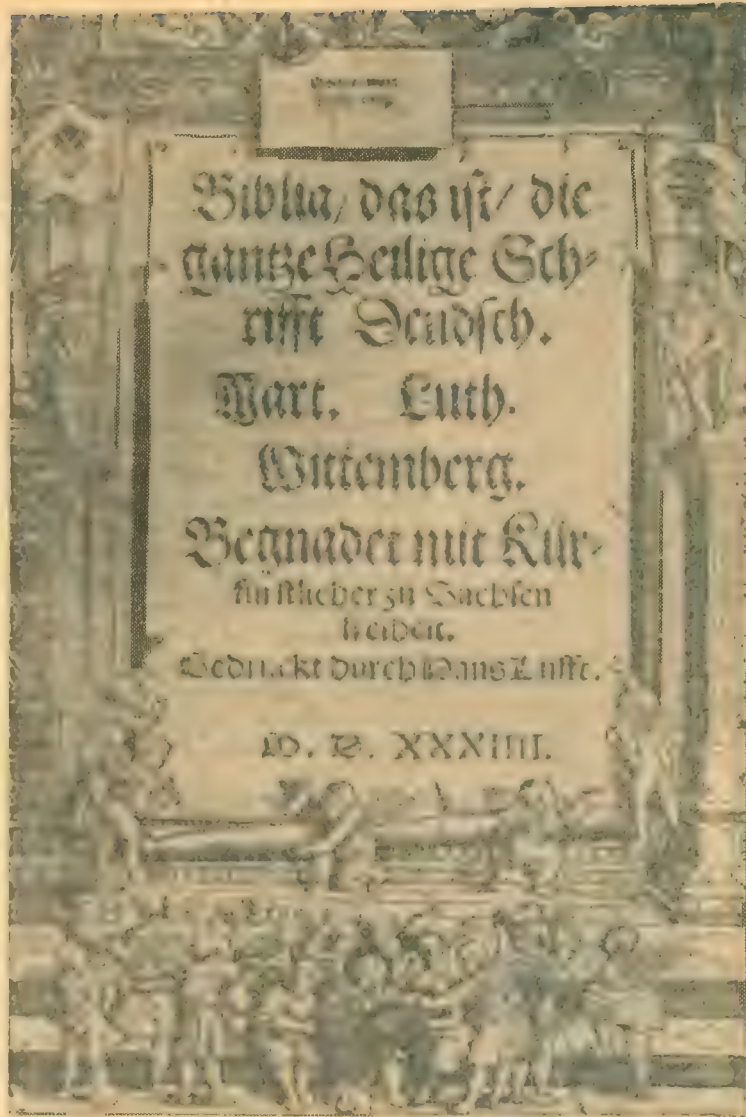 Biblia/ das ist/ die
gantze Heilige Sch-
rifft Deudsch.
Mart. Luth.
Wittemberg.
Begnadet mit Kür-
fürstlicher zu Sachsen
freiheit.
Gedruckt durch Hans Lufft.
M. D. XXXIIII.